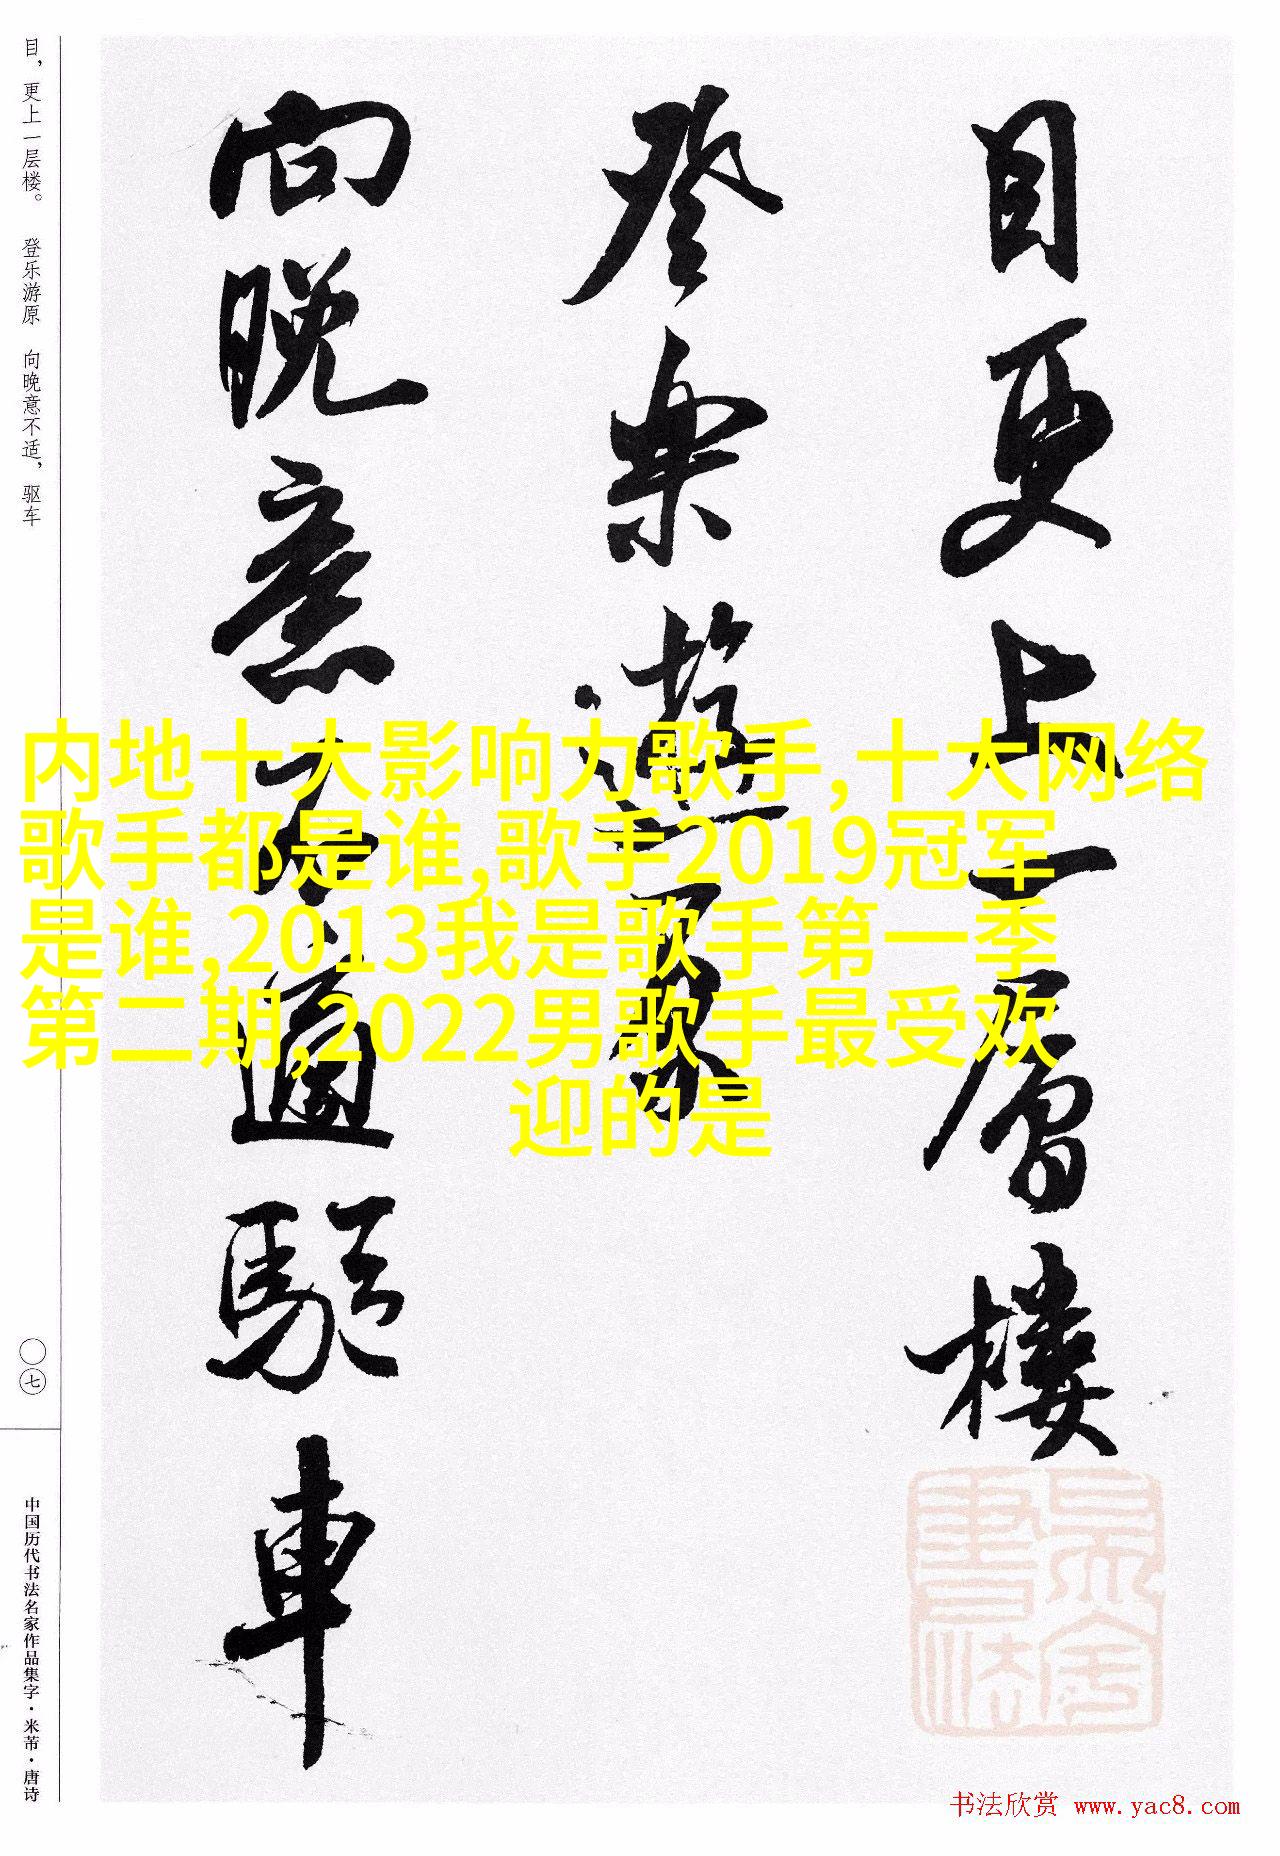 目更上一层樓
登樂遊原
向晚意不適驅車
目，更上一层楼。 登乐游原 向晚意不适，驱车
〇七
中国历代书法名家作品集字·米芾·唐诗
内地十大影响力歌手,十大网络
歌手都是谁,歌手2019冠军
是谁,2013我是歌手第一季
第二期,2022男歌手最受欢
迎的是
书法欣赏 www.yac8.com